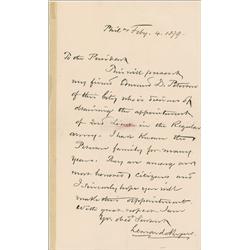 Phila Feby. 4. 1879.
To the President
This will present
my friend Edmund D.
of this City who is desirous of
obtaining the appointment
of 2nd Lieut in the Regular
army. I have known the
family for many
years. They are among our
most honored citizens and
I sincerely hope you will
make this appointment
With great respect I am
Yr. obt Servant
Leonard Myers